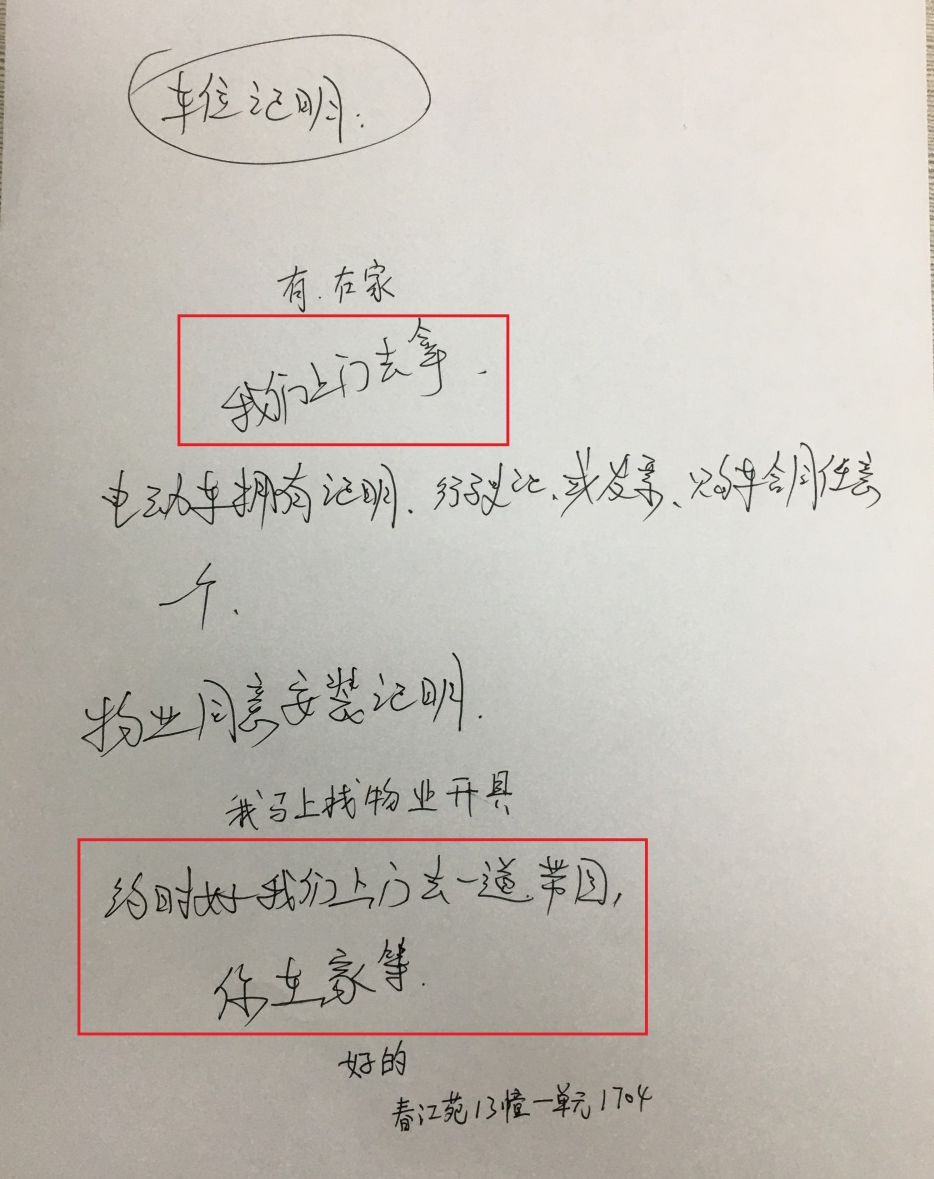 车位证明:
有.在家
我们上门去拿.
电动车拥有证明、行驶证、或发票、购车合同任意
一个、
物业同意安装证明.
我马上找物业开具
约时好我们上门去一道.带回,
你在家等.
好的
春江苑13幢一单元1704